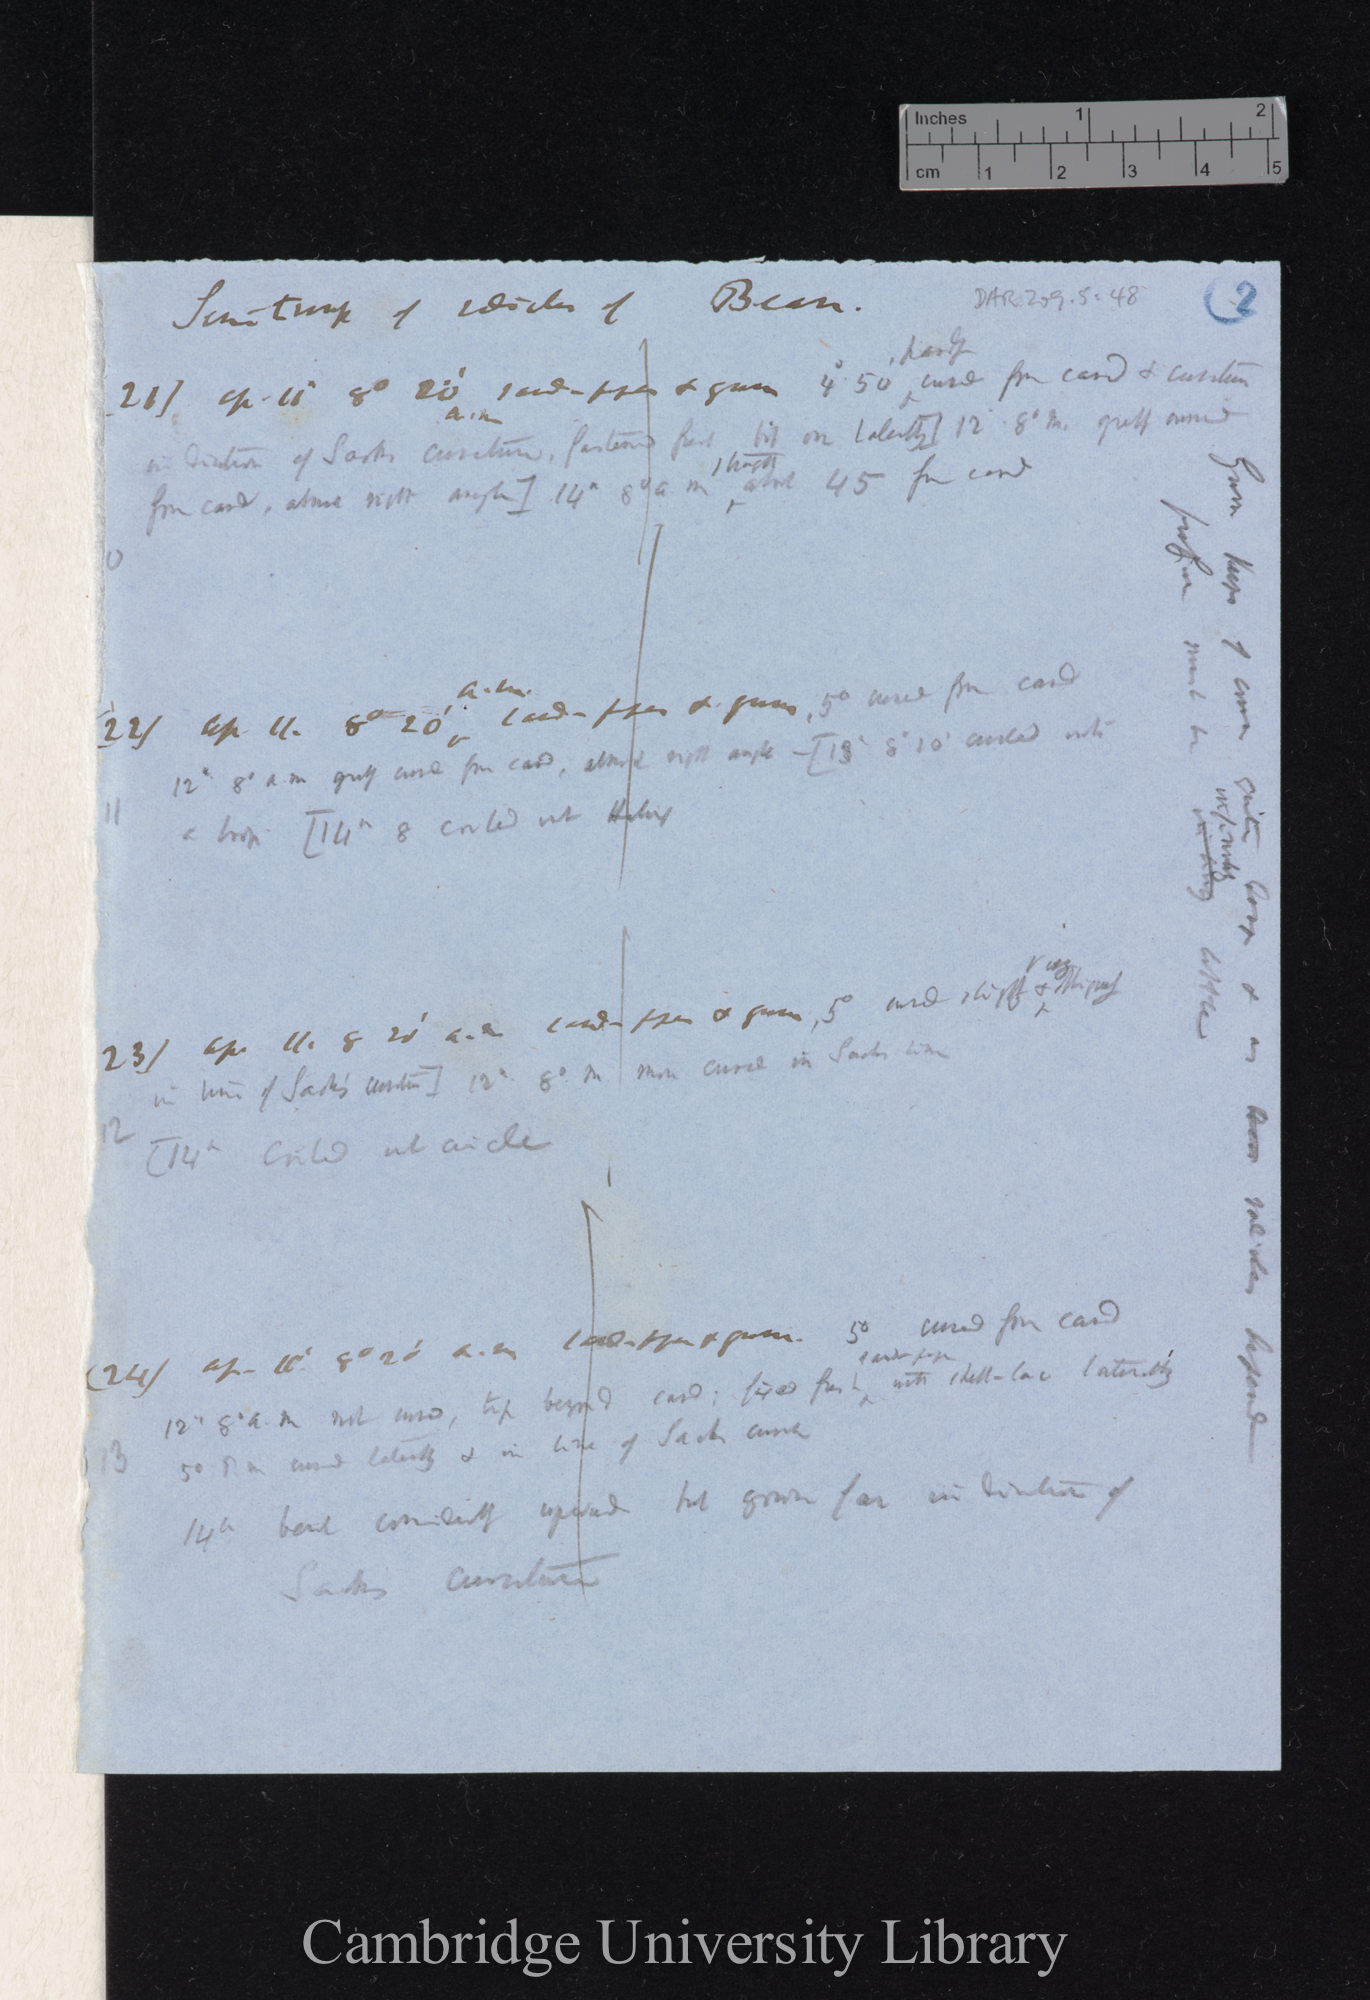 Inches 1 2
cm 1 2 3 4 5
DAR 209.5.48
2
Sensitiveness of radicles of Bean.
21) Ap. 11 8° 20' a.m sand-paper & gum 4° 50' hardly curved from card & curvature
in direction of Sachs curvature, fastened fresh bit on laterally] 12 8° m. greatly curved
from card, almost right angle] 14th 8° a.m about 45 from card
22) Ap. 11. 8° 20' a.m. sand-paper & gum, 5° curved from card
12th 8° a.m greatly curved from card, almost right angle – [13th 8° 10' curled into
a loop [14th 8 coiled into Helix
11
23) Ap. 11. 8 20' a.m sand-paper & gum, 5° curved slightly &
in line of Sachs' curvature] 12th 8° m more curved in Sachs line
12
[14th coiled into circle
24) Ap. 11 8° 20' a.m sand-paper & gum. 5° curved from card
12th 8° a.m not curved, tip beyond card; fixed fresh sand-paper with shell-lac laterally
13
5° P.m curved laterally & in line of Sachs curve
14th bent considerably upwards but grown far in direction of
Sachs curvature
Gum keeps of course quite damp & as Bean radicles
must be little